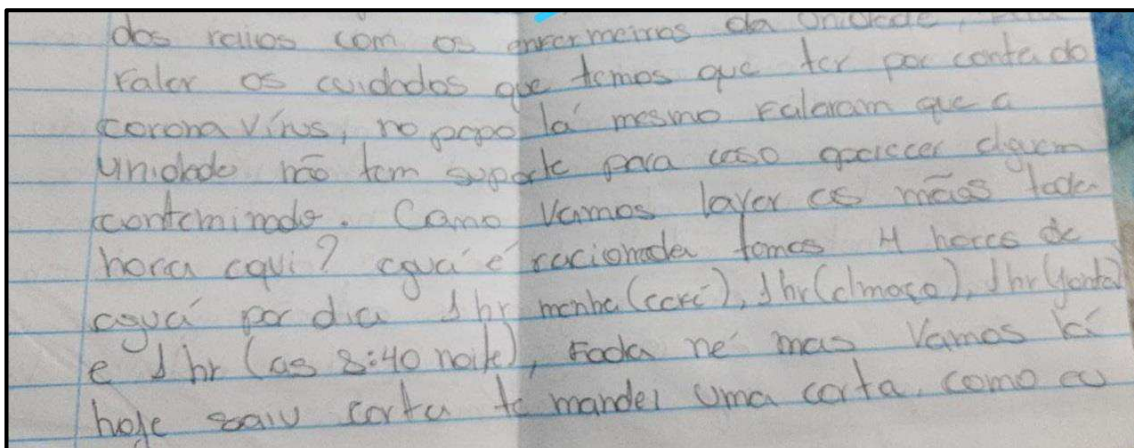 dos raiios com os enfermeiros da unidade,
Falar os cuidados que temos que ter por conta do
corona vírus, no papo lá mesmo Falaram que a
unidade não tem suporte para caso aparecer alguem
contaminado. Como vamos lavar as mãos toda
hora aqui? aguá é racionada temos 4 horas de
aguá por dia 1 hr manha (café), 1 hr (almoço), 1 hr (janta)
e 1 hr (as 8:40 noite), Foda né mas Vamos lá
hoje saiu carta te mandei uma carta, como eu